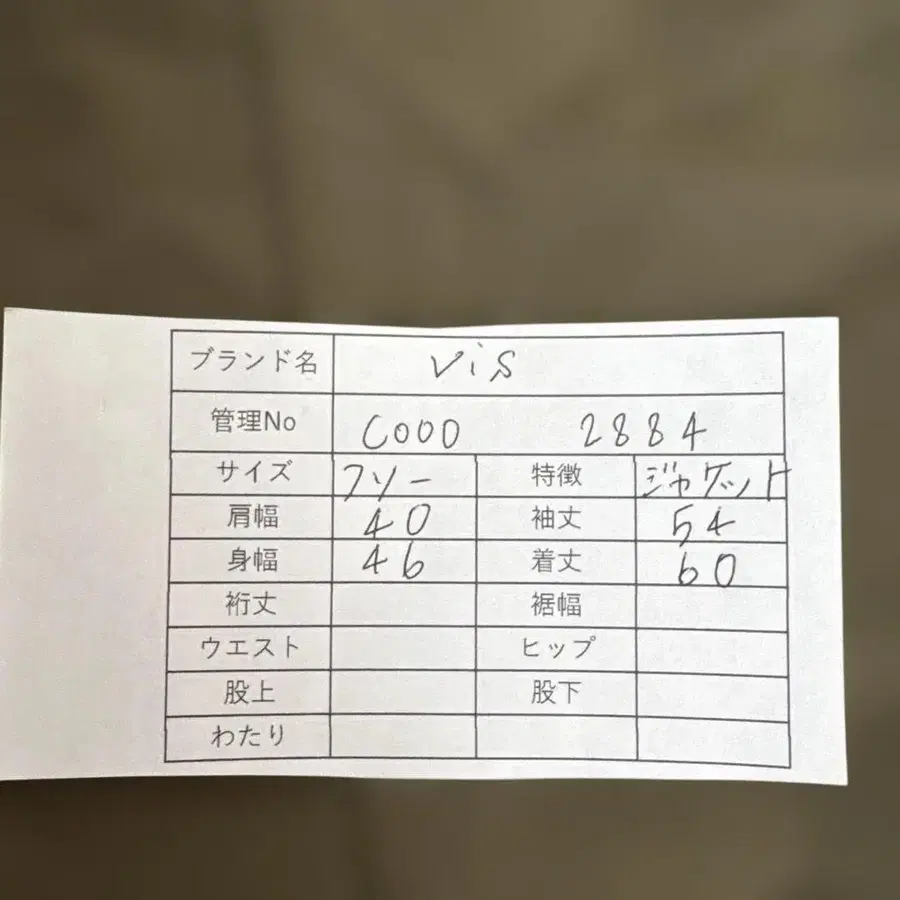 ブランド名 ViS
管理No C000 2884
サイズ フリー 特徴 ジャケット
肩幅 40 袖丈 54
身幅 46 着丈 60
裄丈 裾幅
ウエスト ヒップ
股上 股下
わたり